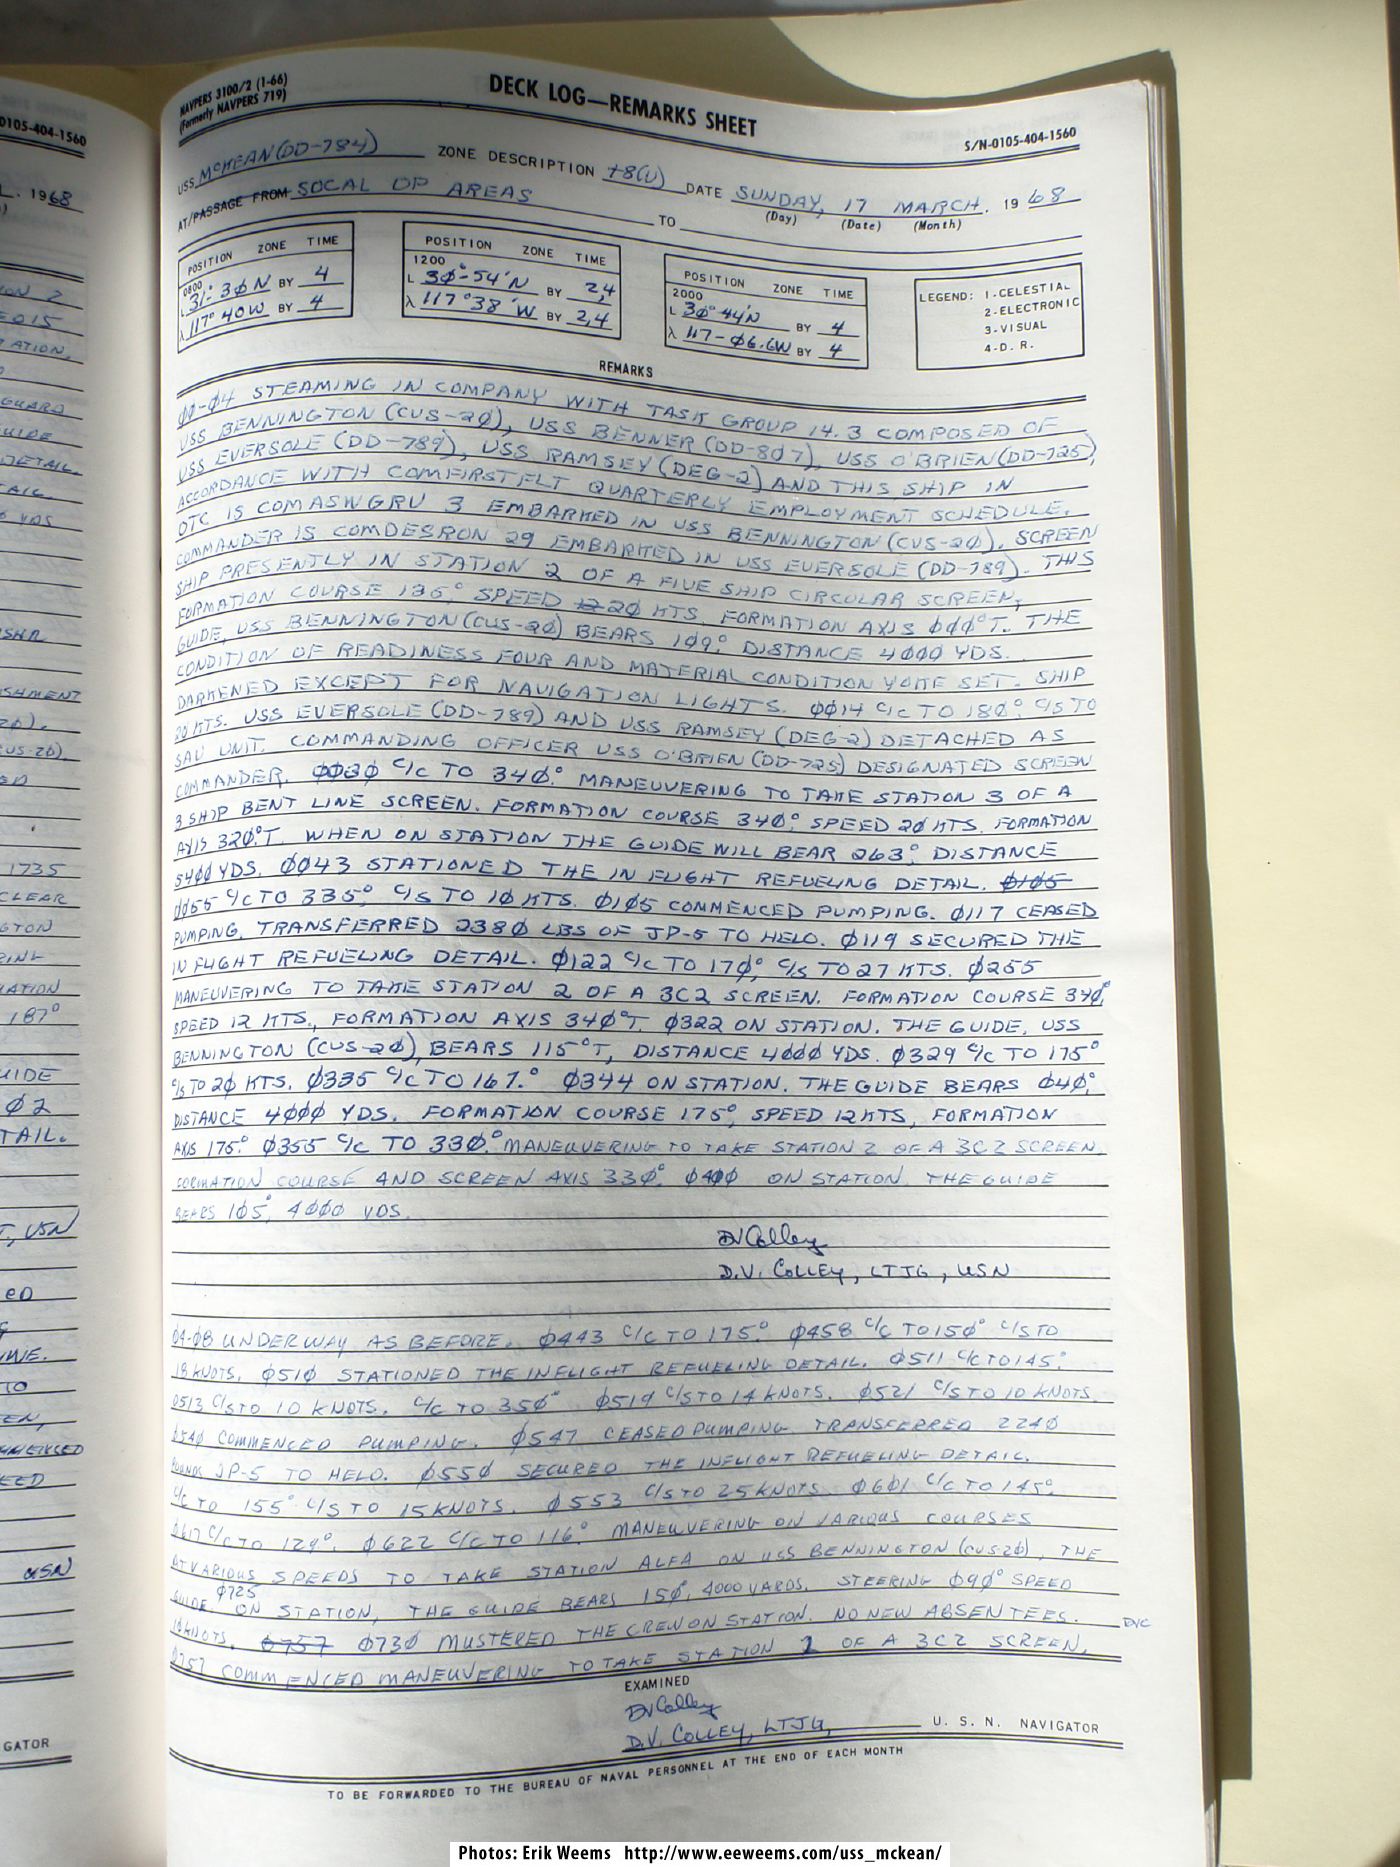 0105-404-1560
L. 1968
ION 2
E 015
ATION,
GUARD
UIDE
DETAIL.
TAIL.
YDS
SHR
SHMENT
(CVS-20)
1735
CLEAR
GTON
RING
MATION
187°
UIDE
02
TAIL.
T, USN
TO
EEN,
EED
USN
GATOR
NAVPERS 3100/2 (1-66)
(Formerly NAVPERS 719)
DECK LOG—REMARKS SHEET
S/N-0105-404-1560
USS MCKEAN (DD-784) ZONE DESCRIPTION +8(U) DATE SUNDAY, 17 MARCH, 1968
(Day) (Date) (Month)
AT/PASSAGE FROM SOCAL OP AREAS TO
POSITION ZONE TIME
0800
L 31°-30N BY 4
λ 117° 40W BY 4
POSITION ZONE TIME
1200
L 30°-54'N BY 2,4
λ 117°38'W BY 2,4
POSITION ZONE TIME
2000
L 30°44'N BY 4
λ 117-06.6W BY 4
LEGEND: 1-CELESTIAL
2-ELECTRONIC
3-VISUAL
4-D. R.
REMARKS
00-04 STEAMING IN COMPANY WITH TASK GROUP 14.3 COMPOSED OF
USS BENNINGTON (CVS-20), USS BENNER (DD-807), USS O'BRIEN (DD-725),
USS EVERSOLE (DD-789), USS RAMSEY (DEG-2) AND THIS SHIP IN
ACCORDANCE WITH COMFIRSTFLT QUARTERLY EMPLOYMENT SCHEDULE.
OTC IS COMASWGRU 3 EMBARKED IN USS BENNINGTON (CVS-20). SCREEN
COMMANDER IS COMDESRON 29 EMBARKED IN USS EVERSOLE (DD-789). THIS
SHIP PRESENTLY IN STATION 2 OF A FIVE SHIP CIRCULAR SCREEN,
FORMATION COURSE 135° SPEED 12 20 KTS. FORMATION AXIS 000°T. THE
GUIDE, USS BENNINGTON (CVS-20) BEARS 109°, DISTANCE 4000 YDS.
CONDITION OF READINESS FOUR AND MATERIAL CONDITION YOKE SET. SHIP
DARKENED EXCEPT FOR NAVIGATION LIGHTS. 0014 C/C TO 180°, C/S TO
20 KTS. USS EVERSOLE (DD-789) AND USS RAMSEY (DEG-2) DETACHED AS
SAU UNIT. COMMANDING OFFICER USS O'BRIEN (DD-725) DESIGNATED SCREEN
COMMANDER. 0030 C/C TO 340°. MANEUVERING TO TAKE STATION 3 OF A
3 SHIP BENT LINE SCREEN. FORMATION COURSE 340°, SPEED 20 KTS. FORMATION
AXIS 320°T. WHEN ON STATION THE GUIDE WILL BEAR 263°, DISTANCE
5400 YDS. 0043 STATIONED THE IN FLIGHT REFUELING DETAIL. 0105
0055 C/C TO 335°, C/S TO 10 KTS. 0105 COMMENCED PUMPING. 0117 CEASED
PUMPING, TRANSFERRED 2380 LBS OF JP-5 TO HELO. 0119 SECURED THE
IN FLIGHT REFUELING DETAIL. 0122 C/C TO 170°, C/S TO 27 KTS. 0255
MANEUVERING TO TAKE STATION 2 OF A 3C2 SCREEN. FORMATION COURSE 340°,
SPEED 12 KTS., FORMATION AXIS 340°T. 0322 ON STATION. THE GUIDE, USS
BENNINGTON (CVS-20), BEARS 115°T, DISTANCE 4000 YDS. 0329 C/C TO 175°
C/S TO 20 KTS. 0335 C/C TO 167.° 0344 ON STATION. THE GUIDE BEARS 040°,
DISTANCE 4000 YDS. FORMATION COURSE 175°, SPEED 12 KTS, FORMATION
AXIS 175°. 0355 C/C TO 330°. MANEUVERING TO TAKE STATION 2 OF A 3C2 SCREEN.
FORMATION COURSE AND SCREEN AXIS 330°. 0400 ON STATION. THE GUIDE
BEARS 105°, 4000 YDS.
DVColley
D.V. COLLEY, LTJG, USN
04-08 UNDERWAY AS BEFORE. 0443 C/C TO 175°. 0458 C/C TO 150° C/S TO
18 KNOTS. 0510 STATIONED THE INFLIGHT REFUELING DETAIL. 0511 C/C TO 145°.
0513 C/S TO 10 KNOTS. C/C TO 350° 0519 C/S TO 14 KNOTS. 0521 C/S TO 10 KNOTS.
0540 COMMENCED PUMPING. 0547 CEASED PUMPING TRANSFERRED 2240
POUNDS JP-5 TO HELO. 0550 SECURED THE INFLIGHT REFUELING DETAIL.
C/C TO 155° C/S TO 15 KNOTS. 0553 C/S TO 25 KNOTS 0601 C/C TO 145°.
0617 C/C TO 129°. 0622 C/C TO 116°. MANEUVERING ON VARIOUS COURSES
AT VARIOUS SPEEDS TO TAKE STATION ALFA ON USS BENNINGTON (CVS-20), THE
GUIDE. 0725 ON STATION, THE GUIDE BEARS 150°, 4000 YARDS. STEERING 090° SPEED
10 KNOTS. 0757 0730 MUSTERED THE CREW ON STATION. NO NEW ABSENTEES. DVC
0757 COMMENCED MANEUVERING TO TAKE STATION 1 OF A 3C2 SCREEN.
EXAMINED
DVColley
D.V. COLLEY, LTJG, U. S. N. NAVIGATOR
TO BE FORWARDED TO THE BUREAU OF NAVAL PERSONNEL AT THE END OF EACH MONTH
Photos: Erik Weems http://www.eeweems.com/uss_mckean/